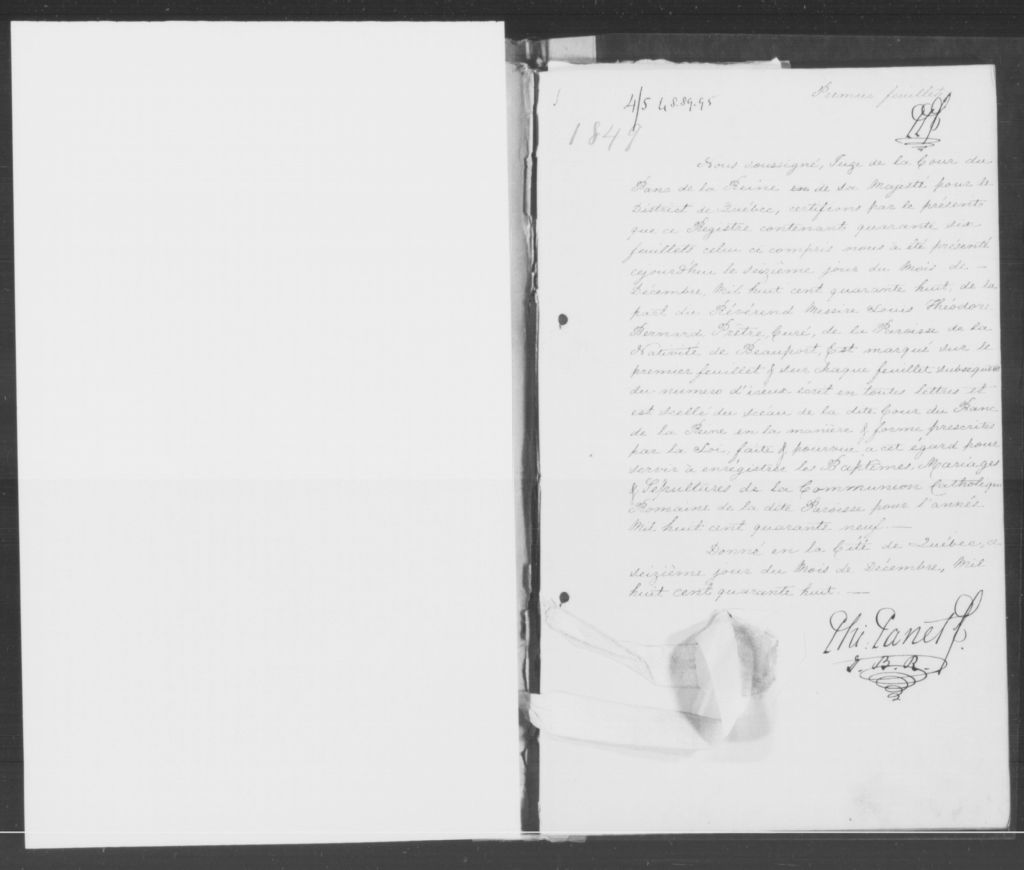 Premier feuillet
4/5 48.89.95
1849
Nous soussigné, Juge de la Cour du
Banc de la Reine en de Sa Majesté pour le
District de Québec, certifions par le présent
que ce Registre contenant quarante six
feuillets celui ci compris nous a été présenté
cejourd'hui le seizième jour du Mois de —
Décembre, Mil huit cent quarante huit, de la
part du Révérend Messire Louis Théodore
Bernard Prêtre, Curé, de la Paroisse de la
Nativité de Beauport, Est marqué sur le
premier feuillet & sur chaque feuillet subsequent
du numero d'iceux écrit en toutes lettres et
est scellé du sceau de la dite Cour du Banc
de la Reine en la manière & forme prescrites
par la Loi, faite & pourvue à cet égard pour
servir à enrégistrer les Baptêmes, Mariages
& Sépultures de la Communion Catholique
Romaine de la dite Paroisse pour l'année
Mil huit cent quarante neuf. —
Donné en la Cité de Québec, ce
seizième jour du Mois de Décembre, Mil
huit cent quarante huit. —
Phi. Panet
J. B. R.